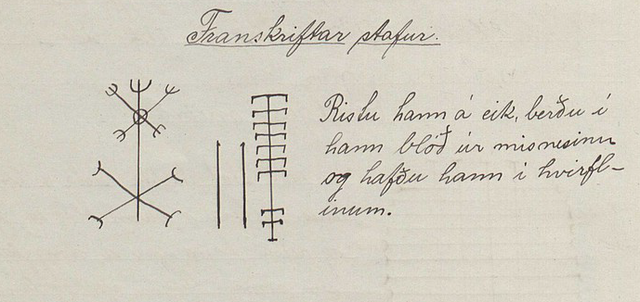 Franskriftar stafur.
Ristu hann á eik, berðu í
hann blóð úr
og hafðu hann í hvirfl-
inum.